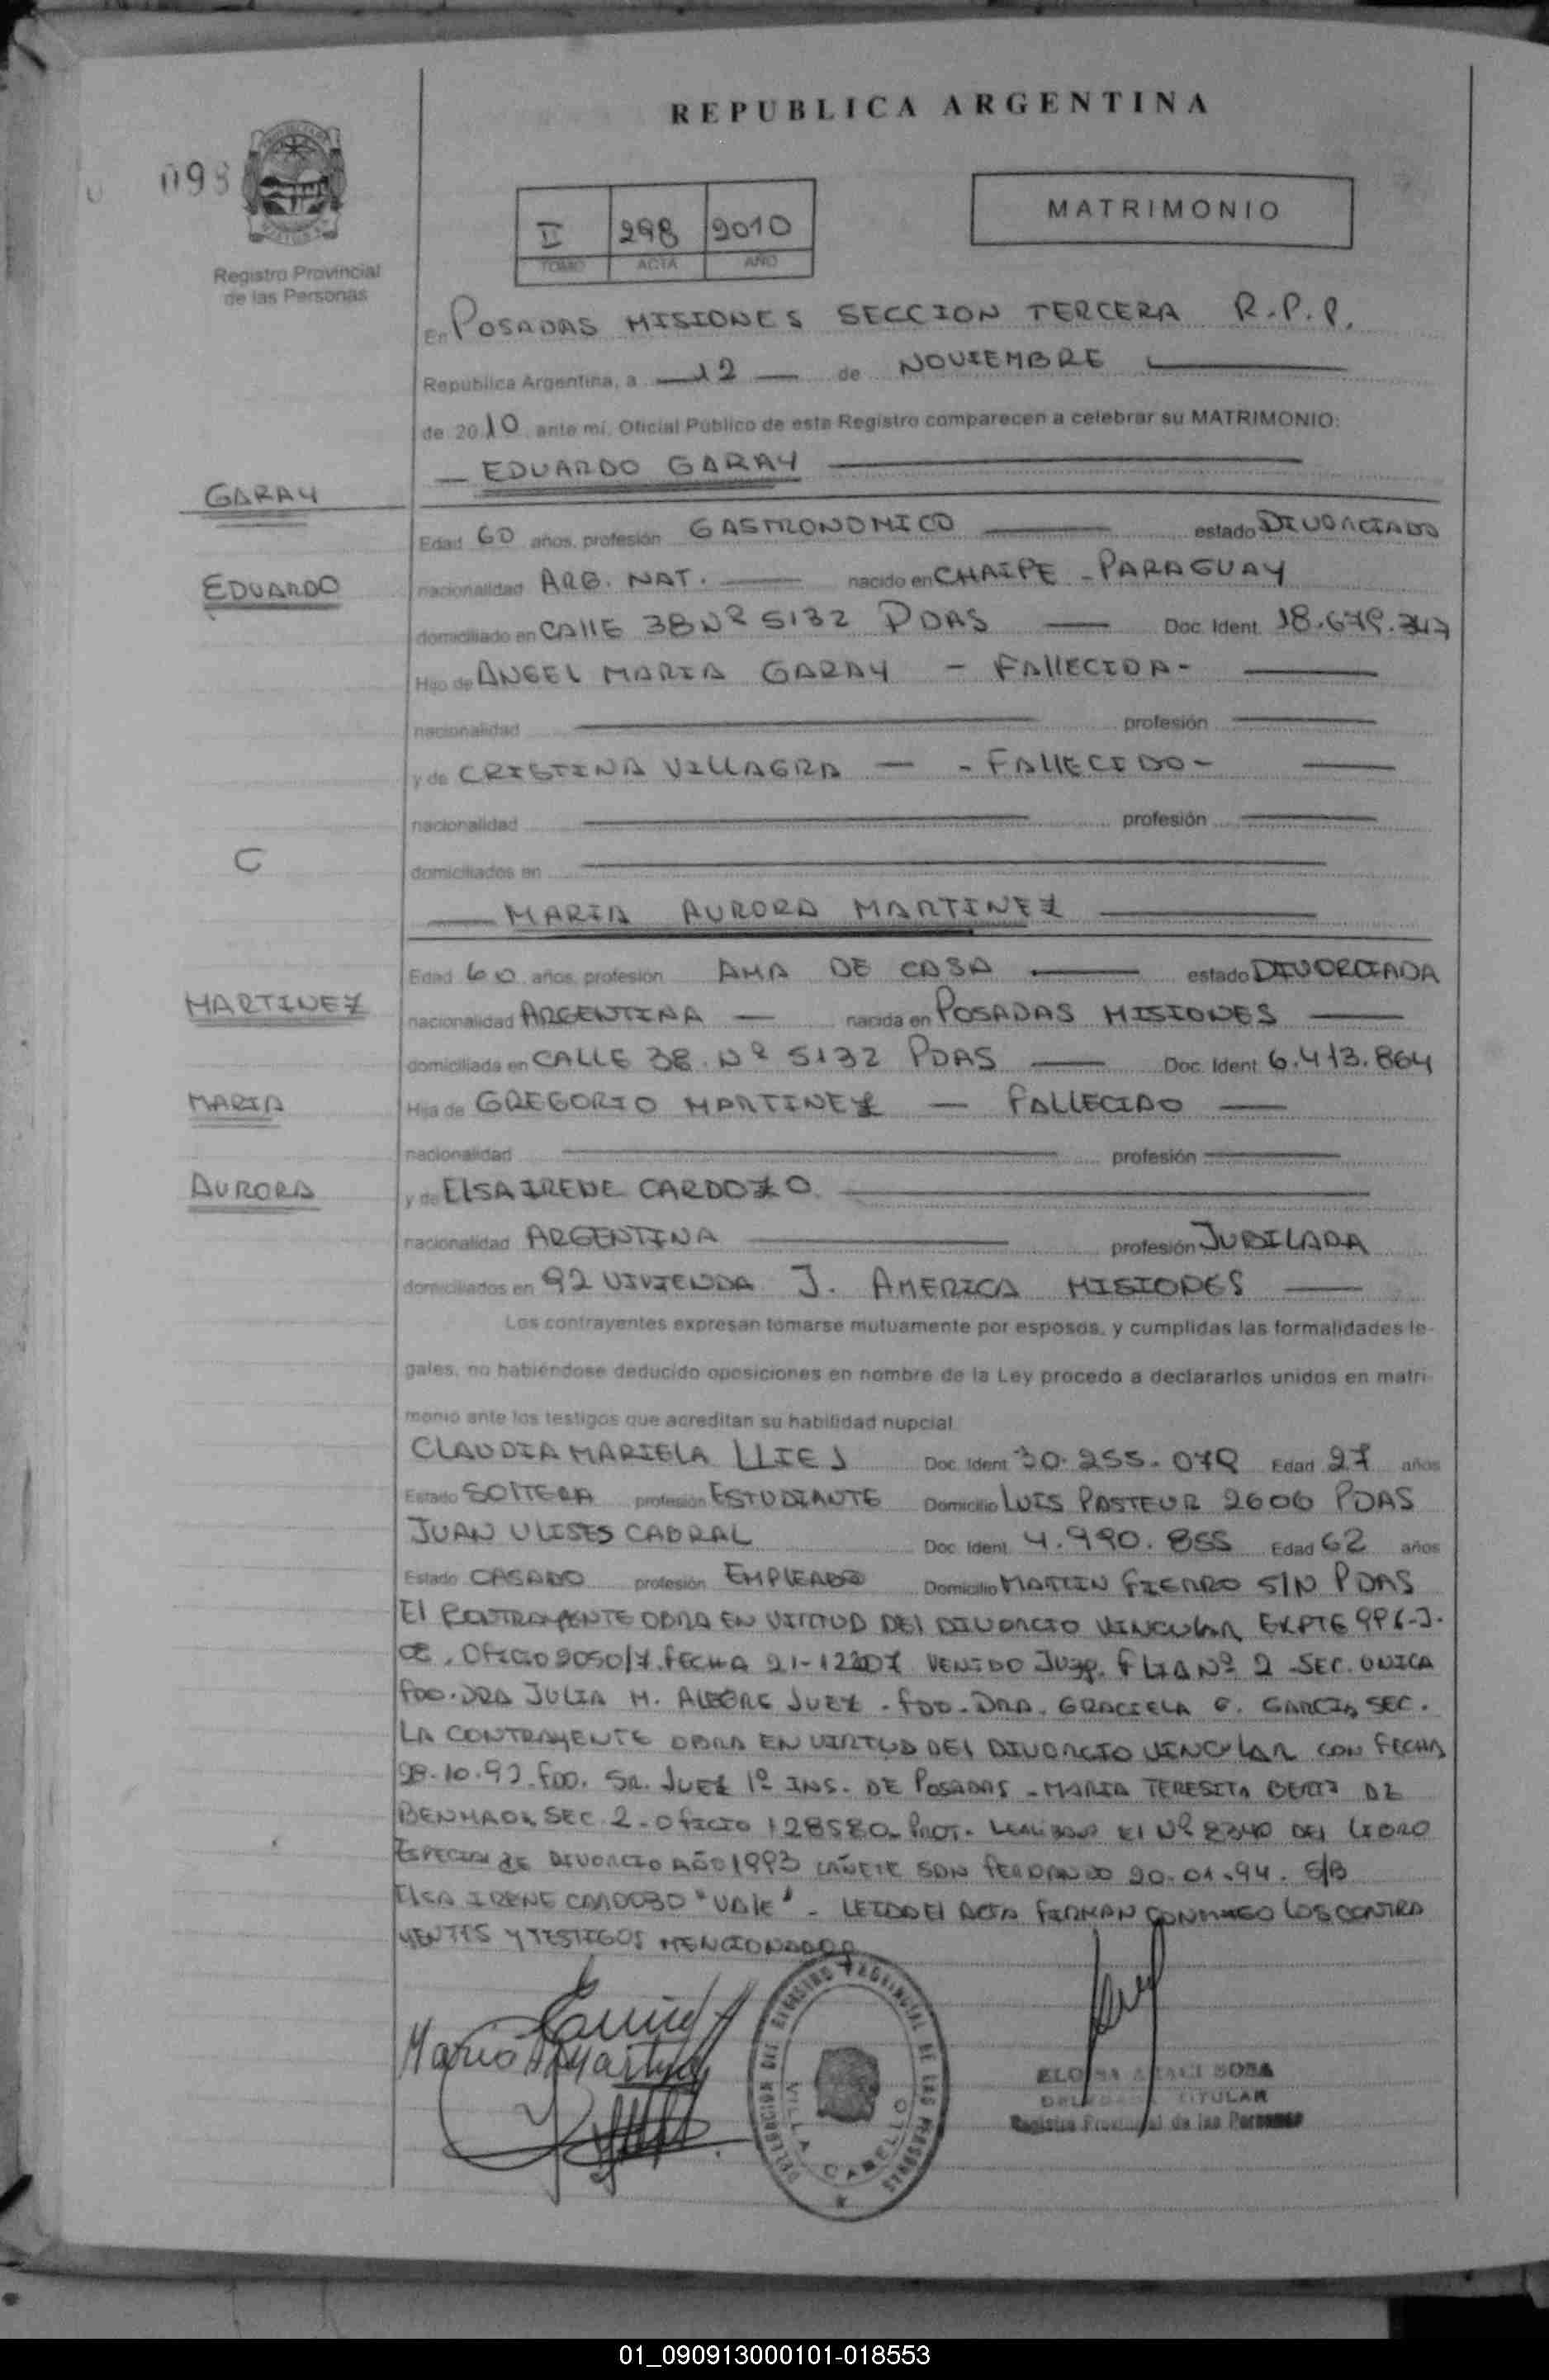 REPUBLICA ARGENTINA
098
MATRIMONIO
II 298 2010
TOMO ACTA AÑO
Registro Provincial
de las Personas
En POSADAS MISIONES SECCION TERCERA R.P.P.
República Argentina, a 12 de NOVIEMBRE
de 2010 ante mí, Oficial Público de este Registro comparecen a celebrar su MATRIMONIO:
EDUARDO GARAY
GARAY
Edad 60 años, profesión GASTRONOMICO estado DIVORCIADO
EDUARDO
nacionalidad ARG. NAT. nacido en CHAIPE - PARAGUAY
domiciliado en CALLE 38 Nº 5132 PDAS Doc. Ident. 18.679.347
Hijo de ANGEL MARIA GARAY - FALLECIDA-
nacionalidad profesión
y de CRISTINA VILLAGRA - FALLECIDO-
nacionalidad profesión
C
domiciliados en
MARIA AURORA MARTINEZ
Edad 60 años, profesión AMA DE CASA estado DIVORCIADA
MARTINEZ
nacionalidad ARGENTINA nacida en POSADAS MISIONES
domiciliada en CALLE 38 Nº 5132 PDAS Doc. Ident. 6.413.864
MARIA
Hija de GREGORIO MARTINEZ - FALLECIDO
nacionalidad profesión
AURORA
y de ELSA IRENE CARDOZO
nacionalidad ARGENTINA profesión JUBILADA
domiciliados en 92 VIVIENDA J. AMERICA MISIONES
Los contrayentes expresan tomarse mutuamente por esposos, y cumplidas las formalidades le-
gales, no habiéndose deducido oposiciones en nombre de la Ley procedo a declararlos unidos en matri-
monio ante los testigos que acreditan su habilidad nupcial
CLAUDIA MARIELA Doc. Ident. 30.255.079 Edad 27 años
Estado SOLTERA profesión ESTUDIANTE Domicilio LUIS PASTEUR 2606 PDAS
JUAN ULISES CABRAL Doc. Ident. 4.990.855 Edad 62 años
Estado CASADO profesión EMPLEADO Domicilio MARTIN FIERRO S/N PDAS
El CONTRAYENTE OBRA EN VIRTUD DEL DIVORCIO VINCULAR EXPTE 996-J.
OFICIO 2050/7. FECHA 21-12 VENIDO JUZG. FLIA Nº 2 SEC. UNICA
FDO. DRA JULIA M. ALEGRE JUEZ - FDO. DRA. GRACIELA GARCIA SEC.
LA CONTRAYENTE OBRA EN VIRTUD DEL DIVORCIO VINCULAR CON FECHA
28-10-92. FDO. SR. JUEZ 1º INS. DE POSADAS - MARIA TERESITA DE
SEC. 2 - OFICIO 128580 - PROT. El Nº 2340 DEL LIBRO
ESPECIAL DE DIVORCIO AÑO 1993 FERNANDO 20.01.94. S/B
ELSA IRENE CARDOZO "VALE" - LEIDA El ACTA FIRMAN CONMIGO LOS CONTRA
YENTES Y TESTIGOS MENCIONADOS
DELEGACION DEL REGISTRO PROVINCIAL DE LAS PERSONAS
VILLA CABELLO
SOSA
TITULAR
Registro Provincial de las Personas
01_090913000101-018553